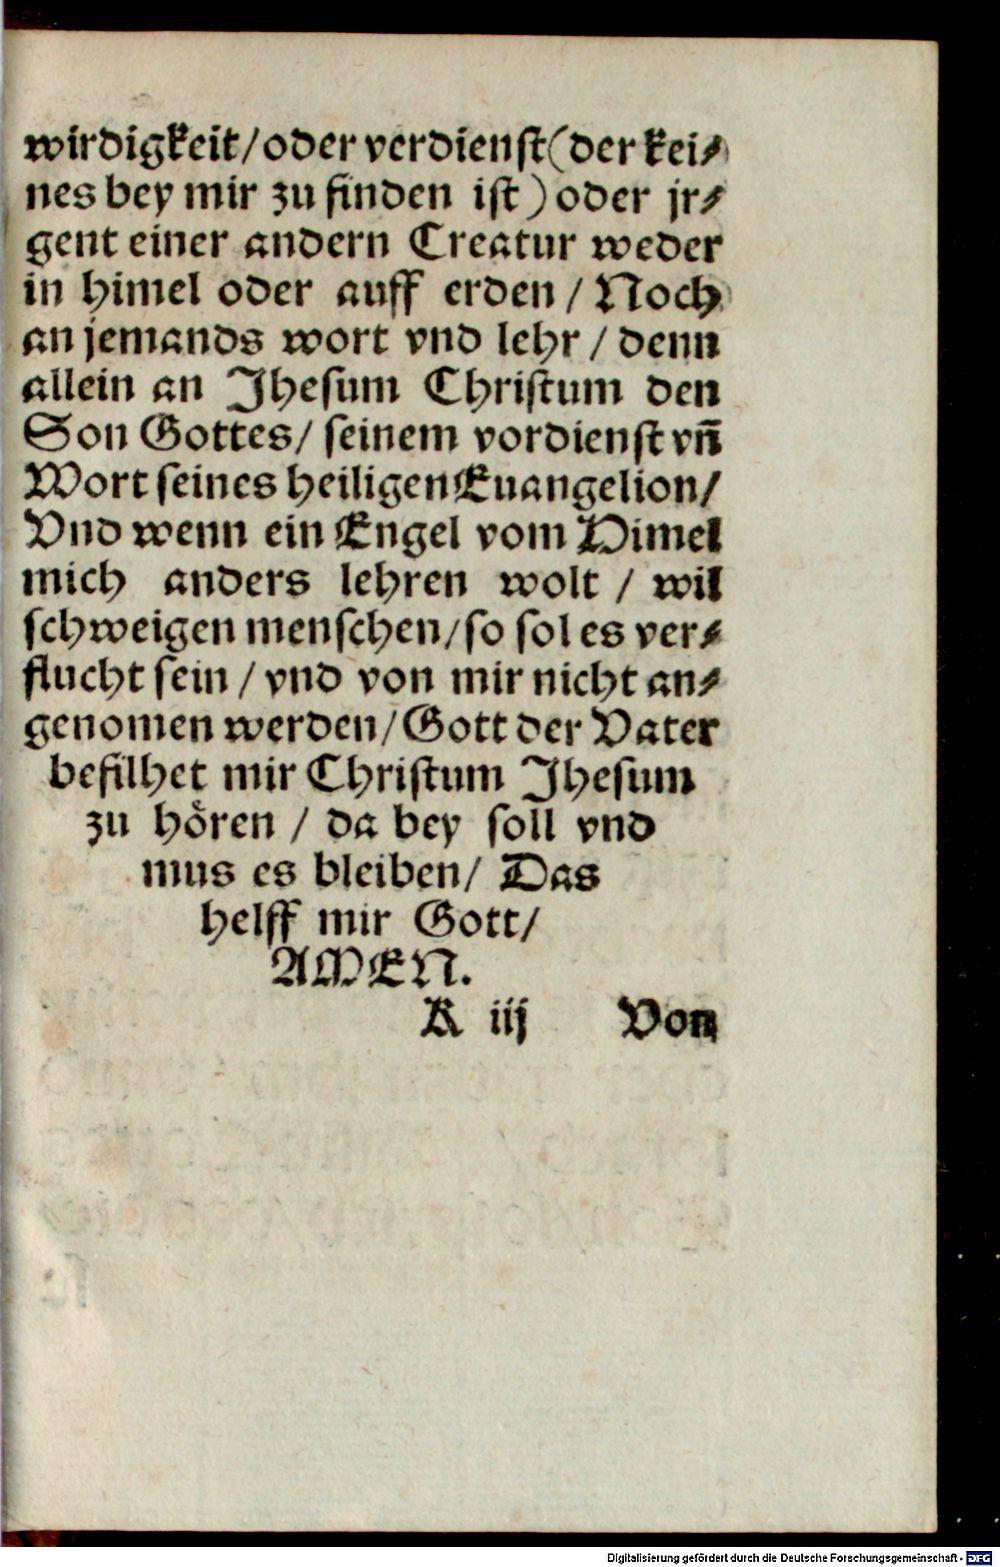 wirdigkeit/oder verdienst(der kei⸗
nes bey mir zu finden ist) oder jr⸗
gent einer andern Creatur weder
in himel oder auff erden / Noch
an jemands wort vnd lehr / denn
allein an Jhesum Christum den
Son Gottes/ seinem vordienst vn̄
Wort seines heiligen Euangelion/
Vnd wenn ein Engel vom Himel
mich anders lehren wolt / wil
schweigen menschen/so sol es ver⸗
flucht sein / vnd von mir nicht an⸗
genomen werden/Gott der Vater
befilhet mir Christum Jhesum
zu hoͤren / da bey soll vnd
mus es bleiben/ Das
helff mir Gott/
AMEN.
K iij Von
Digitalisierung gefördert durch die Deutsche Forschungsgemeinschaft - DFG